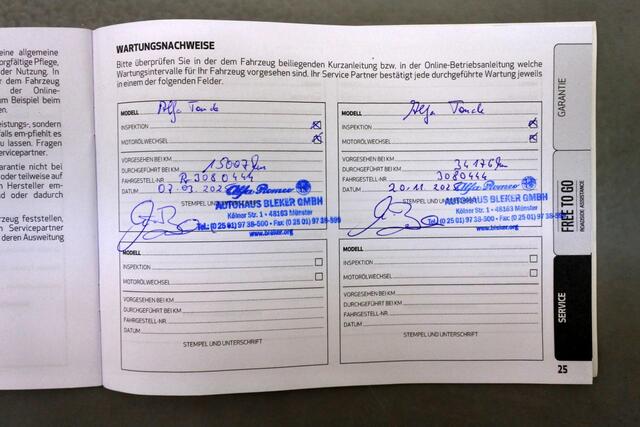 eine allgemeine
orgfältige Pflege,
der Nutzung. In
r dem Fahrzeug
der Online-
um Beispiel beim
en.
eistungs-, sondern
falls em-pfiehlt es
u lassen. Fragen
ervicepartner.
arantie nicht bei
oder teilweise auf
n Hersteller em-
nd oder dadurch
rzeug feststellen,
n Servicepartner
deren Ausweitung
WARTUNGSNACHWEISE
Bitte überprüfen Sie in der dem Fahrzeug beiliegenden Kurzanleitung bzw. in der Online-Betriebsanleitung welche
Wartungsintervalle für Ihr Fahrzeug vorgesehen sind. Ihr Service Partner bestätigt jede durchgeführte Wartung jeweils
in einem der folgenden Felder.
MODELL Alfa Tonale
INSPEKTION
MOTORÖLWECHSEL
VORGESEHEN BEI KM
DURCHGEFÜHRT BEI KM 15007km
FAHRGESTELL-NR R3080444
DATUM 07.03.202
STEMPEL UND
Alfa Romeo
AUTOHAUS BLEKER GMBH
Kölner Str. 1 • 48163 Münster
Tel.: (0 25 01) 97 38-500 • Fax: (0 25 01) 97 38-599
www.bleker.org
MODELL Alfa Tonale
INSPEKTION
MOTORÖLWECHSEL
VORGESEHEN BEI KM
DURCHGEFÜHRT BEI KM 34176km
FAHRGESTELL-NR 3080444
DATUM 20.11.202
STEMPEL
Alfa Romeo
AUTOHAUS BLEKER GMBH
Kölner Str. 1 • 48163 Münster
Tel.: (0 25 01) 97 38-500 • Fax: (0 25 01) 97 38-599
www.bleker.org
MODELL
INSPEKTION
MOTORÖLWECHSEL
VORGESEHEN BEI KM
DURCHGEFÜHRT BEI KM
FAHRGESTELL-NR
DATUM
STEMPEL UND UNTERSCHRIFT
MODELL
INSPEKTION
MOTORÖLWECHSEL
VORGESEHEN BEI KM
DURCHGEFÜHRT BEI KM
FAHRGESTELL-NR.
DATUM
STEMPEL UND UNTERSCHRIFT
GARANTIE
FREE TO GO
ROADSIDE ASSISTANCE
SERVICE
25